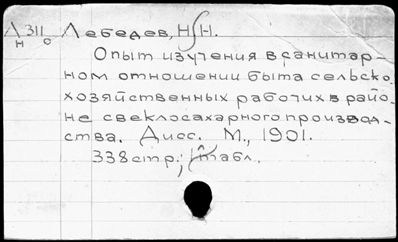 Л 311 Лебедев, Н.Н.
Н о
Опыт изучения в санитар-
ном отношении быта сельско-
хозяйственных рабочих в райо-
не свеклосахарного производ-
ства. Дисс. М., 1901.
338 стр.; табл.